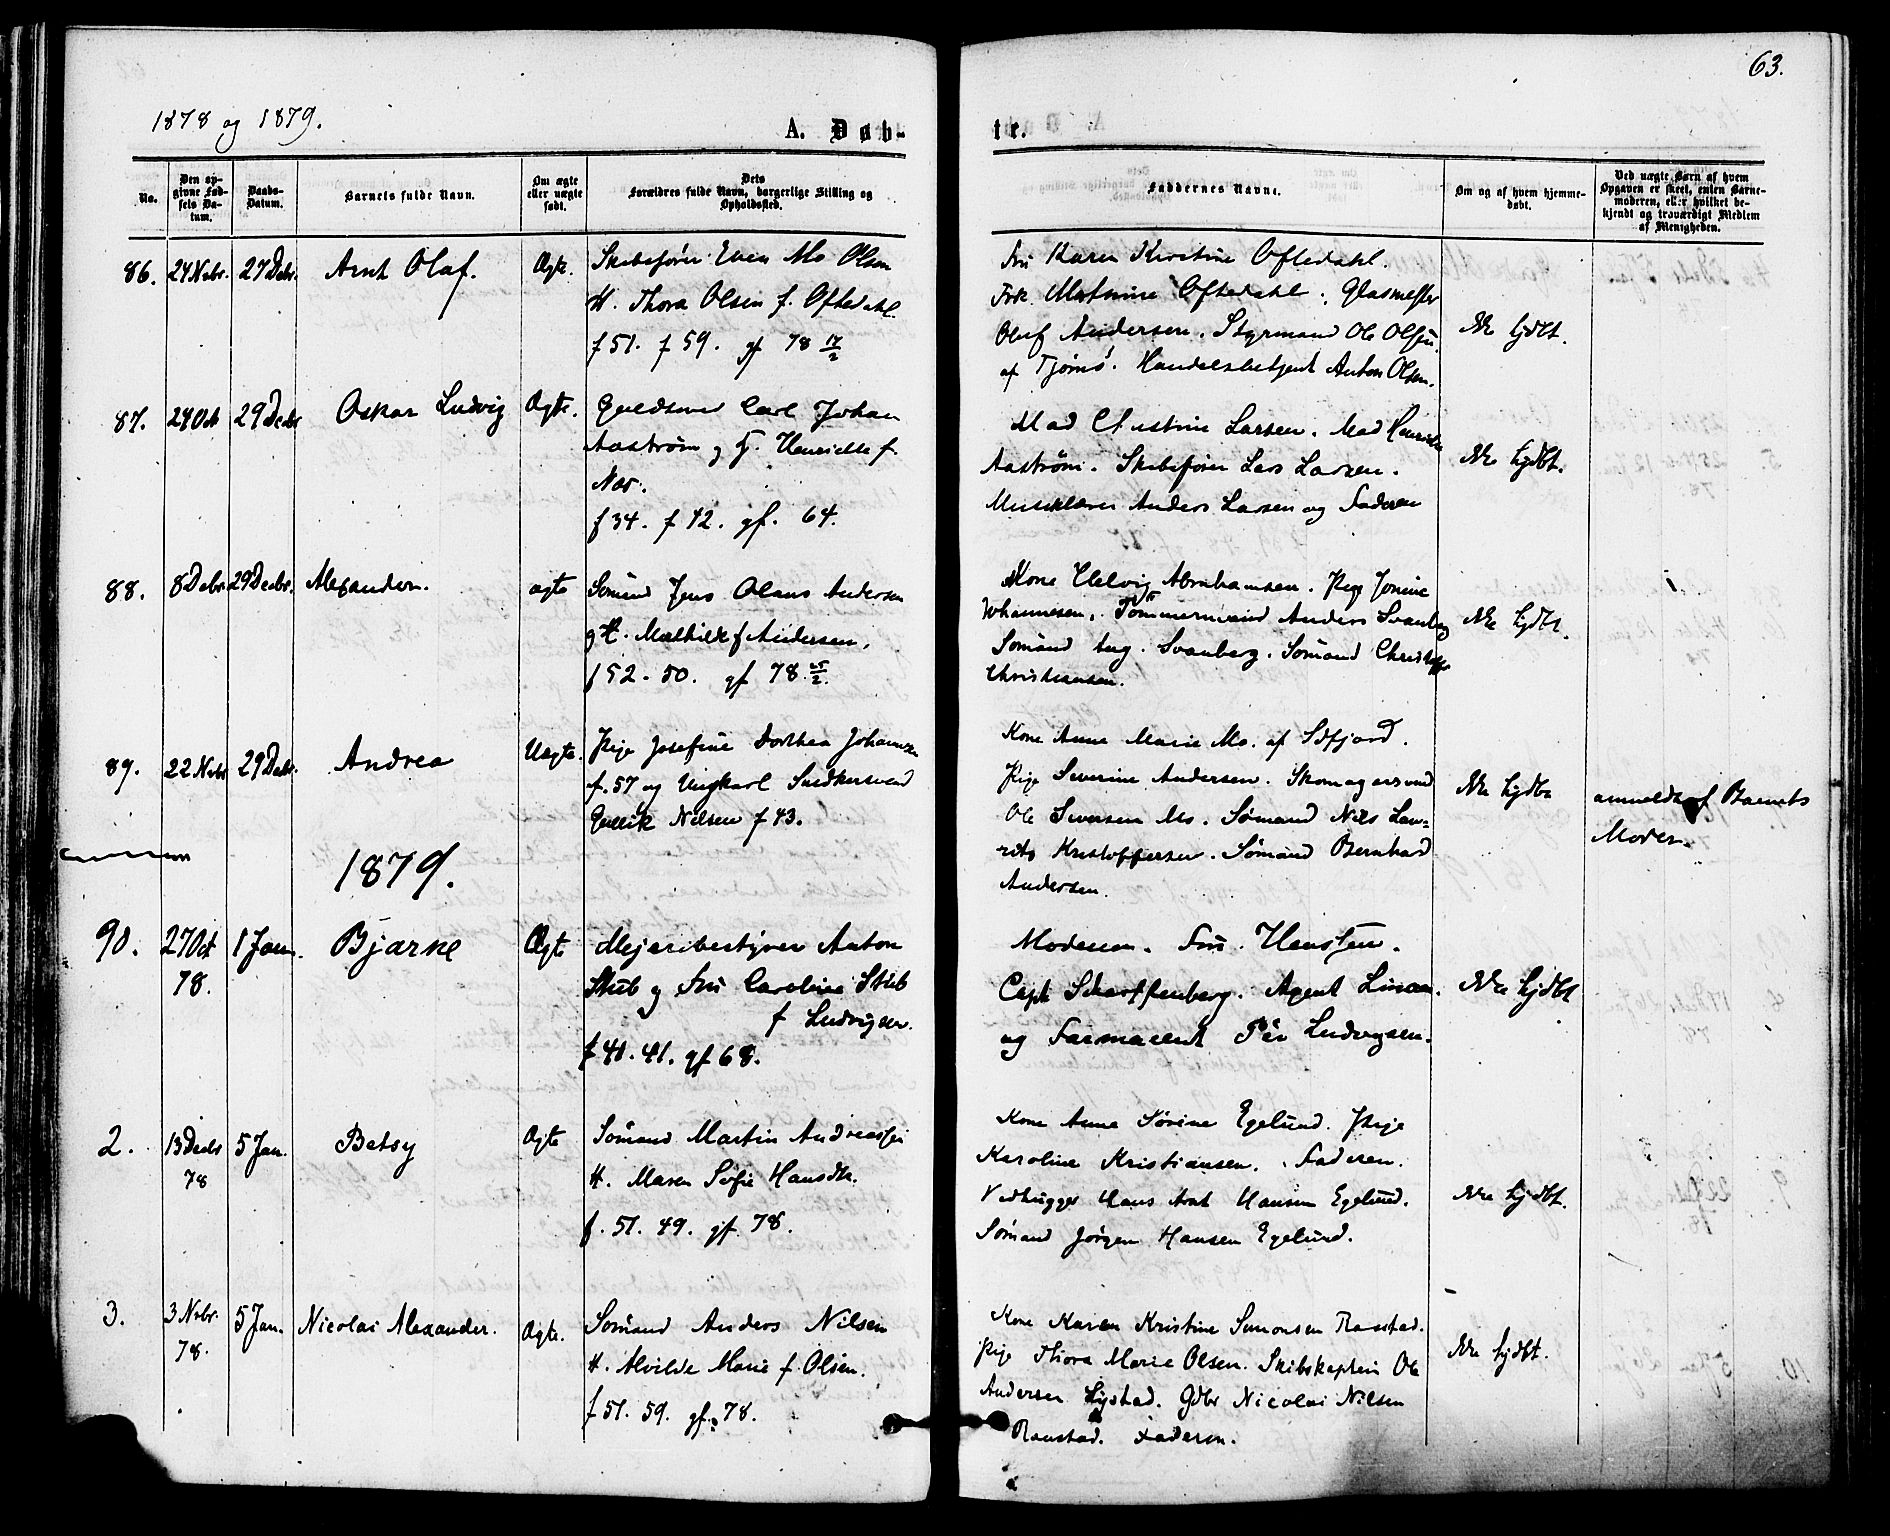 63.
1878 og 1879.
A. Døb-
te.
No.
Den op-
givne Fød-
sels Da-
tum.
Daabs-
Datum.
Barnets fulde Navn.
Om ægte
eller uægte
født.
Dets
Forældres fulde Navn, borgerlige Stilling og
Opholdssted.
Faddernes Navne.
Om og af hvem hjemme-
døbt.
Ved uægte Børn af hvem
Opgaven er skeet, enten Barne-
moderen, eller hvilket be-
kjendt og troværdigt Medlem
af Menigheden.
86. 24 Nvbr. 27 Debr. Arnt Olaf. Ægte.
Skibsfører Even Mo Olsen
H. Thora Olsen f. Oftedahl.
f 51. f 59. gf 78 17/2
Fru Karen Kirstine Oftedahl.
Frk Oftedahl. Glasmester
Oluf Andersen. Styrmand Ole Olsen
af Tjømø. Handelsbetjent Anton Olsen.
Ikke hjdbt.
87. 24 Oct 29 Decbr Oskar Ludvig Ægte.
Guldsmed Carl Johan
Aastrøm og H. Henriette f.
Næs.
f 34. f 42. gf. 64.
Mad Christine Larsen. Mad Henriette
Aastrøm. Skibsfører Lars Larsen.
Musiklærer Anders Larsen og Faderen
Ikke hjdbt.
88. 8 Debr 29 Decbr. Alexander. ægte
Sømand Jens Olaus Andersen
og H. Mathilde f Andersen.
f 52 - 50. gf 78 25/2.
Kone Helvig Abrahamsen. Pige Jonine
Johannesen. Tømmermand Anders Svanberg
Sømand Aug. Svanberg. Sømand Christoffer
Christiansen.
Ikke hjdbt.
89. 22 Nvbr 29 Debr. Andrea Uægte.
Pige Josefine Dorthea Johannesen
f. 57 og Ungkarl Snedkersvend
Gullik Nilsen f 43.
Kone Anne Marie Mo. af
Pige Severine Andersen. Skomagersvend
Ole Seversen Mo. Sømand Nils Lau-
rits Kristoffersen. Sømand Bernhard
Andersen.
Ikke hjdbt
anmeldt af Barnets
Moder.
1879.
90. 27 Oct
78. 1 Jan. Bjarne Ægte
Mejeribestyrer Anton
Stub og Fru Caroline Stub
f Ludvigsen.
f 41. 41. gf 68.
Moderen. Fru Hansteen.
Capt Scharffenberg. Agent Linaae.
og Farmaceut Per Ludvigsen.
Ikke hjdbt
2. 13 Decbr
78 5 Jan. Betsy Ægte
Sømand Martin Andreassen
H. Maren Sofie Hansdtr.
f. 51. 49. gf 78.
Kone Anne Sørine Egelund. Pige
Karoline Kristiansen. Faderen.
Vedhugger Hans Arnt Hansen Egelund.
Sømand Jørgen Hansen Egelund.
Ikke hjdbt.
3. 3 Nvbr.
78. 5 Jan. Nicolai Alexander. Ægte.
Sømand Anders Nilsen
H. Alvilde Marie f Olsen.
f 51. 59. gf. 78.
Kone Karen Kristine Simonsen Ranstad.
Pige Thora Marie Olsen. Skibskaptein Ole
Andersen Lystad. Gdbr Nicolai Nilsen
Ranstad. Faderen.
Ikke hjdbt.